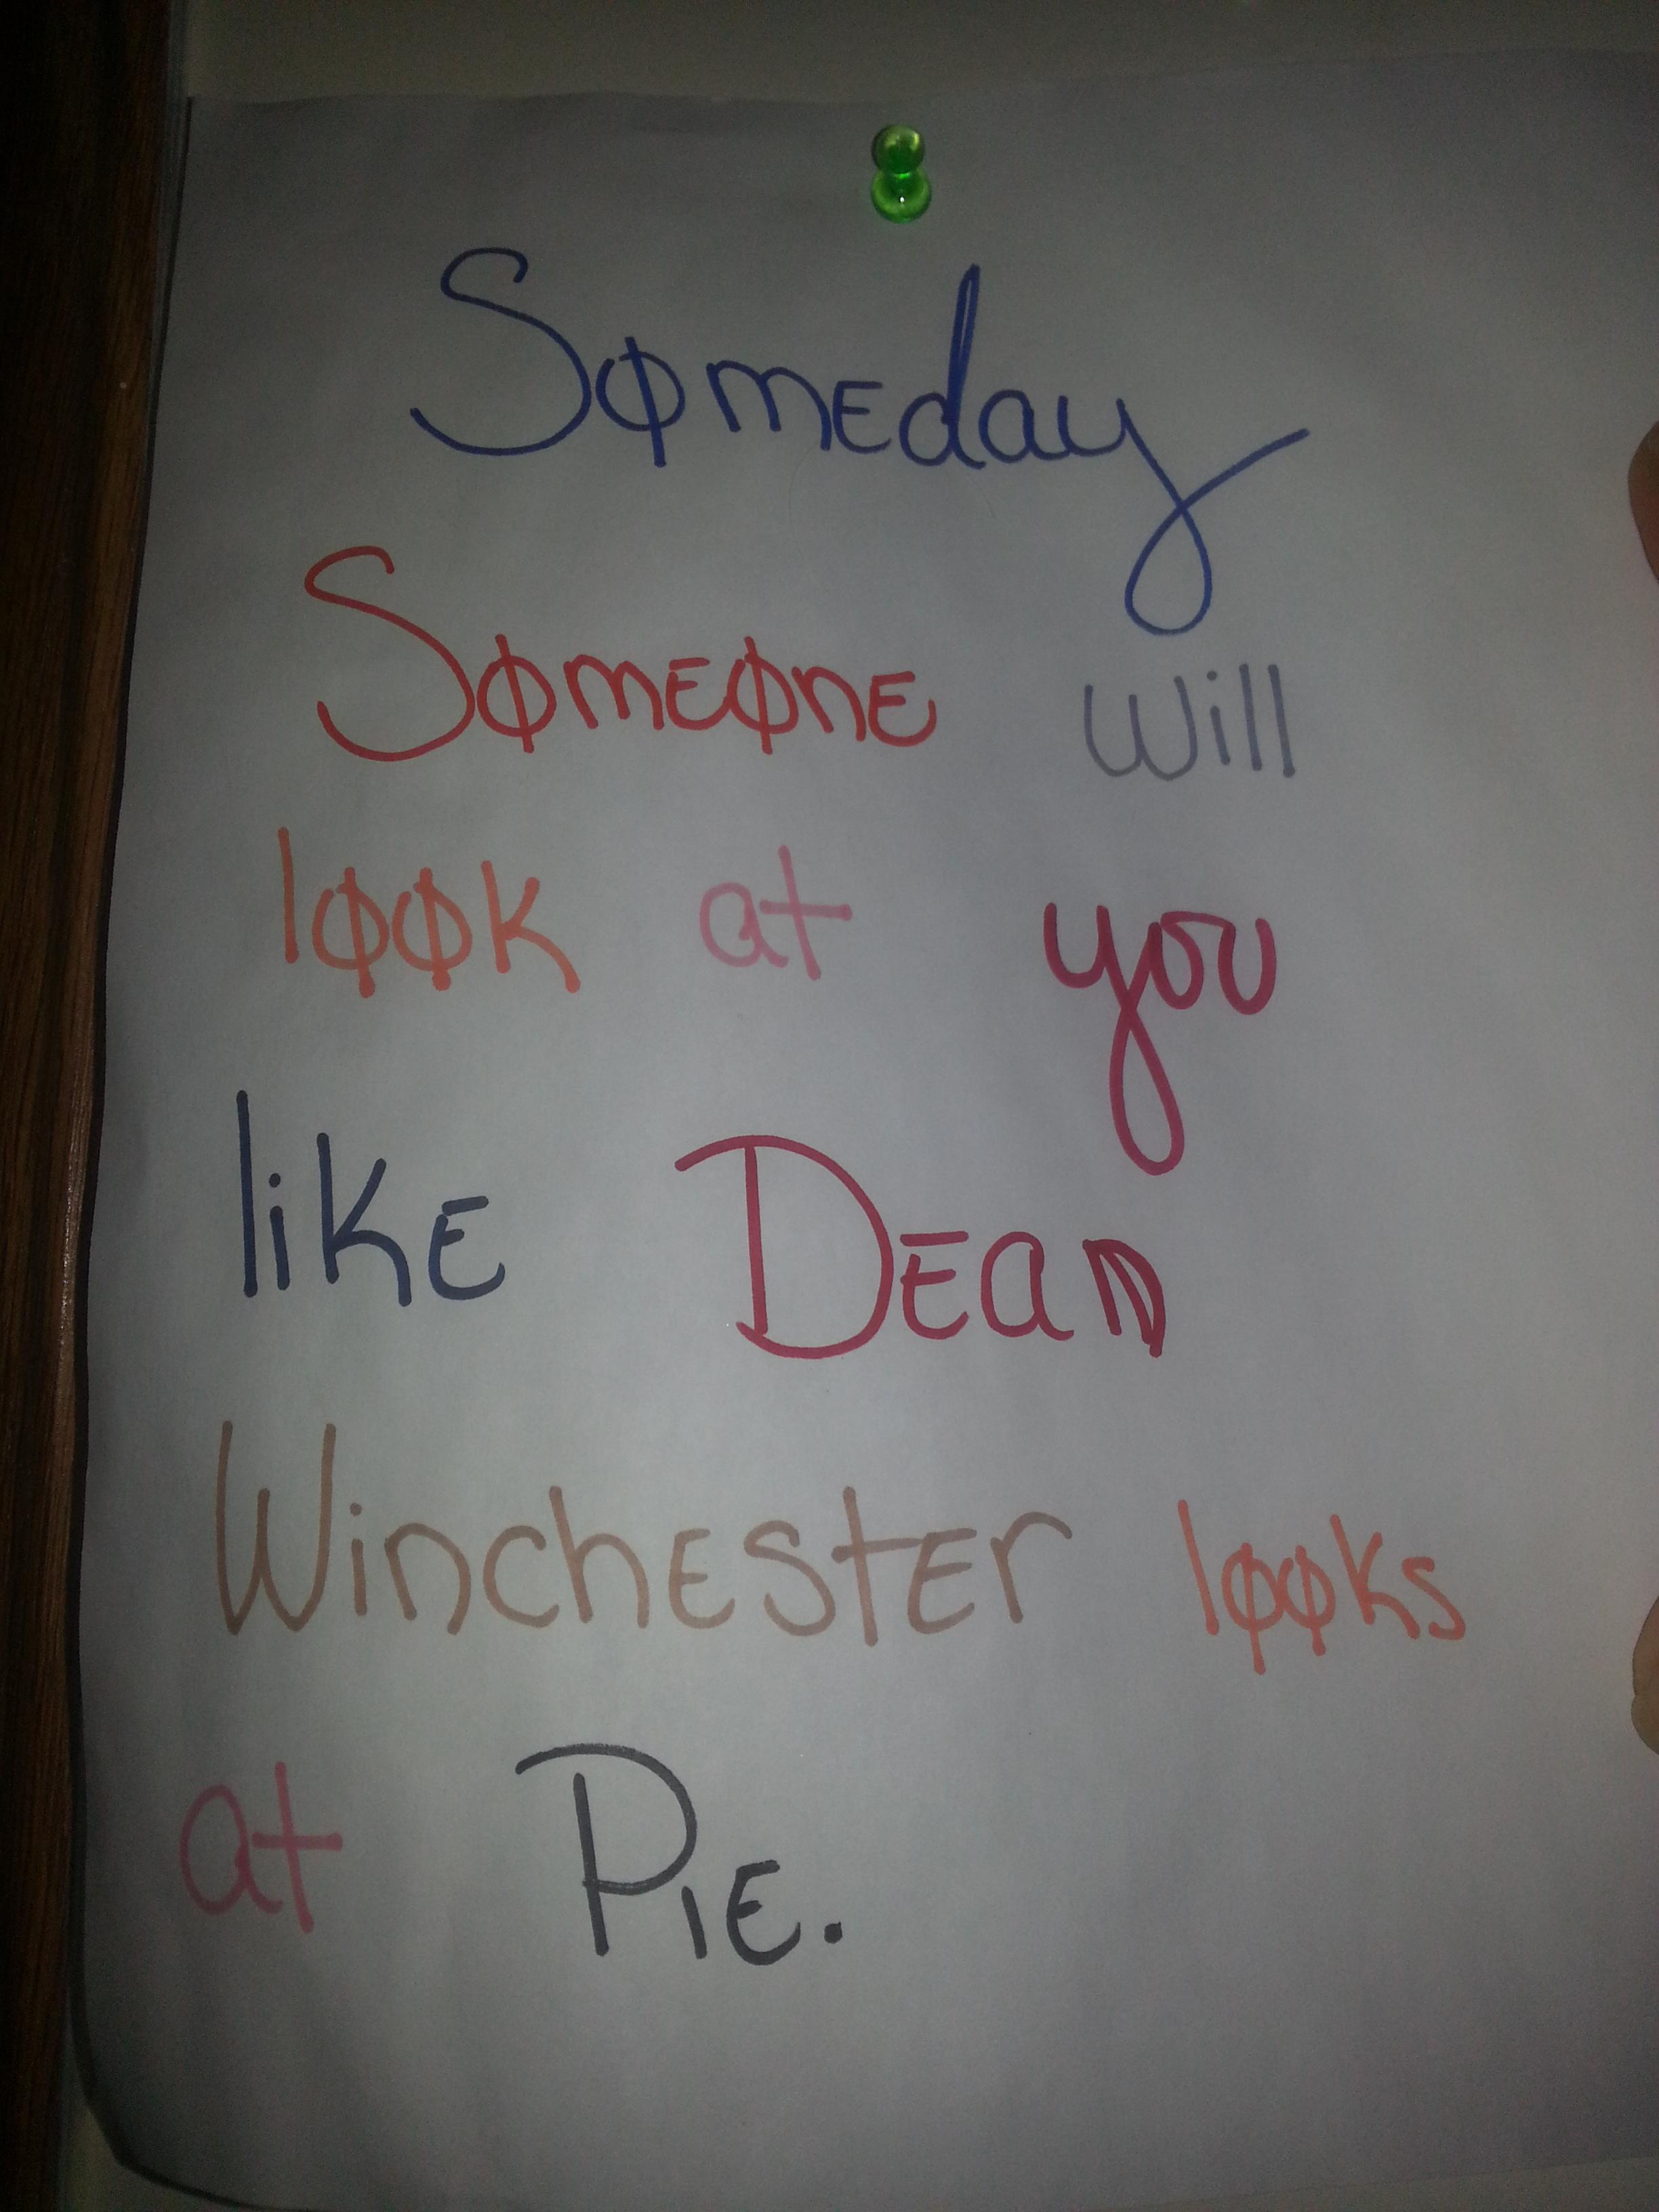 Sømeday
Sømeøne will
løøk at you
like Dean
Winchester løøks
at Pie.